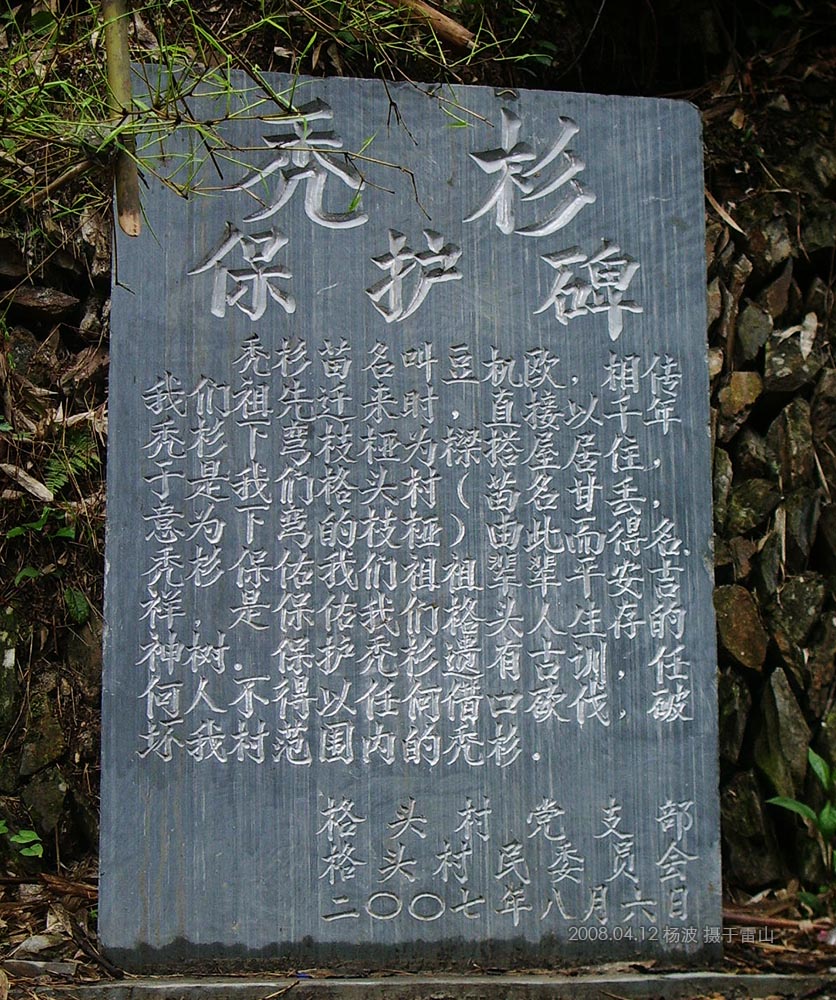 秃杉
保护碑
秃杉苗名叫豆机欧,相传
我们祖先迁来时,直接以千年
秃杉下弯枝桠为樑搭屋居住,
于是我们格头村(苗名甘丢,
意为下弯的枝桠)由此而得名.
秃杉保佑我们祖祖辈辈平安吉
祥,是保佑我们格头人生存的
神树.保护秃杉遗有古训,任
何人不得以任何借口砍伐,破
坏我村范围内的秃杉.
格头村党支部
格头村民委员会
二〇〇七年八月六日
2008.04.12 杨波 摄于雷山